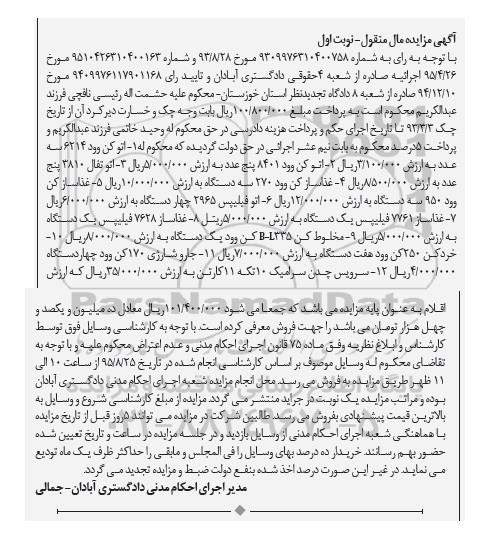 آگهی مزایده مال منقول- نوبت اول
با توجه به رای به شماره ۹۳۰۹۹۷۶۳۱۰۴۰۰۷۵۸ مورخ ۹۳/۸/۲۸ و شماره ۹۵۱۰۴۲۶۳۱۰۴۰۰۱۶۳ مورخ
۹۵/۴/۲۶ اجرائیه صادره از شعبه ۴حقوقی دادگستری آبادان و تایید رای ۹۴۰۹۹۷۶۱۱۷۹۰۱۱۶۸ مورخ
۹۴/۱۲/۱۰ صادره از شعبه ۸ دادگاه تجدیدنظر استان خوزستان- محکوم علیه حشمت اله رئیسی نافچی فرزند
عبدالکریم محکوم است به پرداخت مبلغ ۱۰۰/۸۰۰/۰۰۰ریال بابت وجه چک و خسارت دیرکرد آن از تاریخ
چک ۹۳/۳/۳ تا تاریخ اجرای حکم و پرداخت هزینه دادرسی در حق محکوم له وحید خاتمی فرزند عبدالکریم و
پرداخت ۵درصد محکوم به بابت نیم عشر اجرائی در حق دولت گردیده که محکوم له۱- اتو کن وود ۶۲۱۴ سه
عدد به ارزش ۳/۱۰۰/۰۰۰ریال ۲-اتو کن وود ۸۴۰۱ پنج عدد به ارزش ۵/۰۰۰/۰۰۰ریال ۳- اتو تفال ۳۸۱۰ پنج
عدد به ارزش ۸/۵۰۰/۰۰۰ریال ۴- غذاساز کن وود ۲۷۰ سه دستگاه به ارزش ۱۰/۰۰۰/۰۰۰ریال ۵- غذاساز کن
وود ۹۵۰ سه دستگاه به ارزش ۱۲/۰۰۰/۰۰۰ریال ۶- اتو فیلیپس ۲۹۶۵ چهار دستگاه به ارزش ۶/۰۰۰/۰۰۰ریال
۷- غذاساز ۷۷۶۱ فیلیپس یک دستگاه به ارزش ۵/۰۰۰/۰۰۰ریتل ۸- غذاساز ۷۶۲۸ فیلیپس یک دستگاه
به ارزش ۵/۰۰۰/۰۰۰ریال ۹- مخلوط کن B-L۳۳۵ کن وود یک دستگاه به ارزش ۸/۰۰۰/۰۰۰ریال ۱۰-
خردکن ۲۵۰کن وود هفت دستگاه به ارزش ۷/۰۰۰/۰۰۰ریال ۱۱- جارو شارژی ۱۷۰کن وود چهار دستگاه
۴/۰۰۰/۰۰۰ریال ۱۲- سرویس چدن سرامیک ۱۰تکه ۱۱کارتن به ارزش ۳۵/۰۰۰/۰۰۰ریال که ارزش
اقلام به عنوان پایه مزایده می باشد که جمعا می شود ۱۰۱/۴۰۰/۰۰۰ریال معادل ده میلیون و یکصد و
چهل هزار تومان می باشد را جهت فروش معرفی کرده است. با توجه به کارشناسی وسایل فوق توسط
کارشناس و ابلاغ نظریه وفق ماده ۷۵ قانون اجرای احکام مدنی و عدم اعتراض محکوم علیه و با توجه به
تقاضای محکوم له وسایل موصوف بر اساس کارشناسی انجام شده در تاریخ ۹۵/۸/۲۵ از ساعت ۱۰ الی
۱۱ ظهر طریق مزایده به فروش می رسد. محل انجام مزایده شعبه اجرای احکام مدنی دادگستری آبادان
بوده و مراتب مزایده یک نوبت در جراید منتشر می گردد. مزایده از مبلغ کارشناسی شروع و وسایل به
بالاترین قیمت پیشنهادی بفروش می رسد. طالبین شرکت در مزایده می توانند ۵روز قبل از تاریخ مزایده
با هماهنگی شعبه اجرای احکام مدنی از وسایل بازدید و در جلسه مزایده در ساعت و تاریخ تعیین شده
حضور بهم رسانند. خریدار ده درصد بهای وسایل را فی المجلس و مابقی را حداکثر ظرف یک ماه تودیع
می نماید. در غیر این صورت درصد اخذ شده بنفع دولت ضبط و مزایده تجدید می گردد.
مدیر اجرای احکام مدنی دادگستری آبادان- جمالی